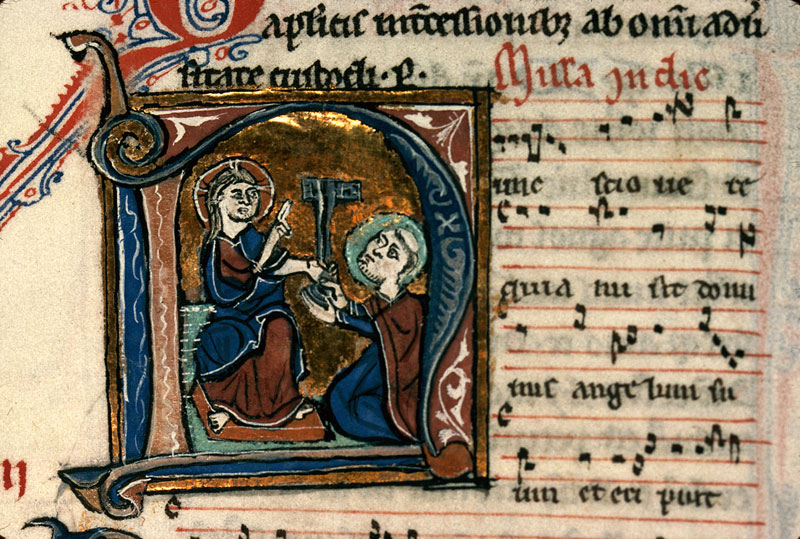 aplicis intcessionib; ab omi adũ
sitate custodi. P. Missa in die
N
unc scio ue re
quia mi sit domi
nus ange lum su
um et eri puit
II